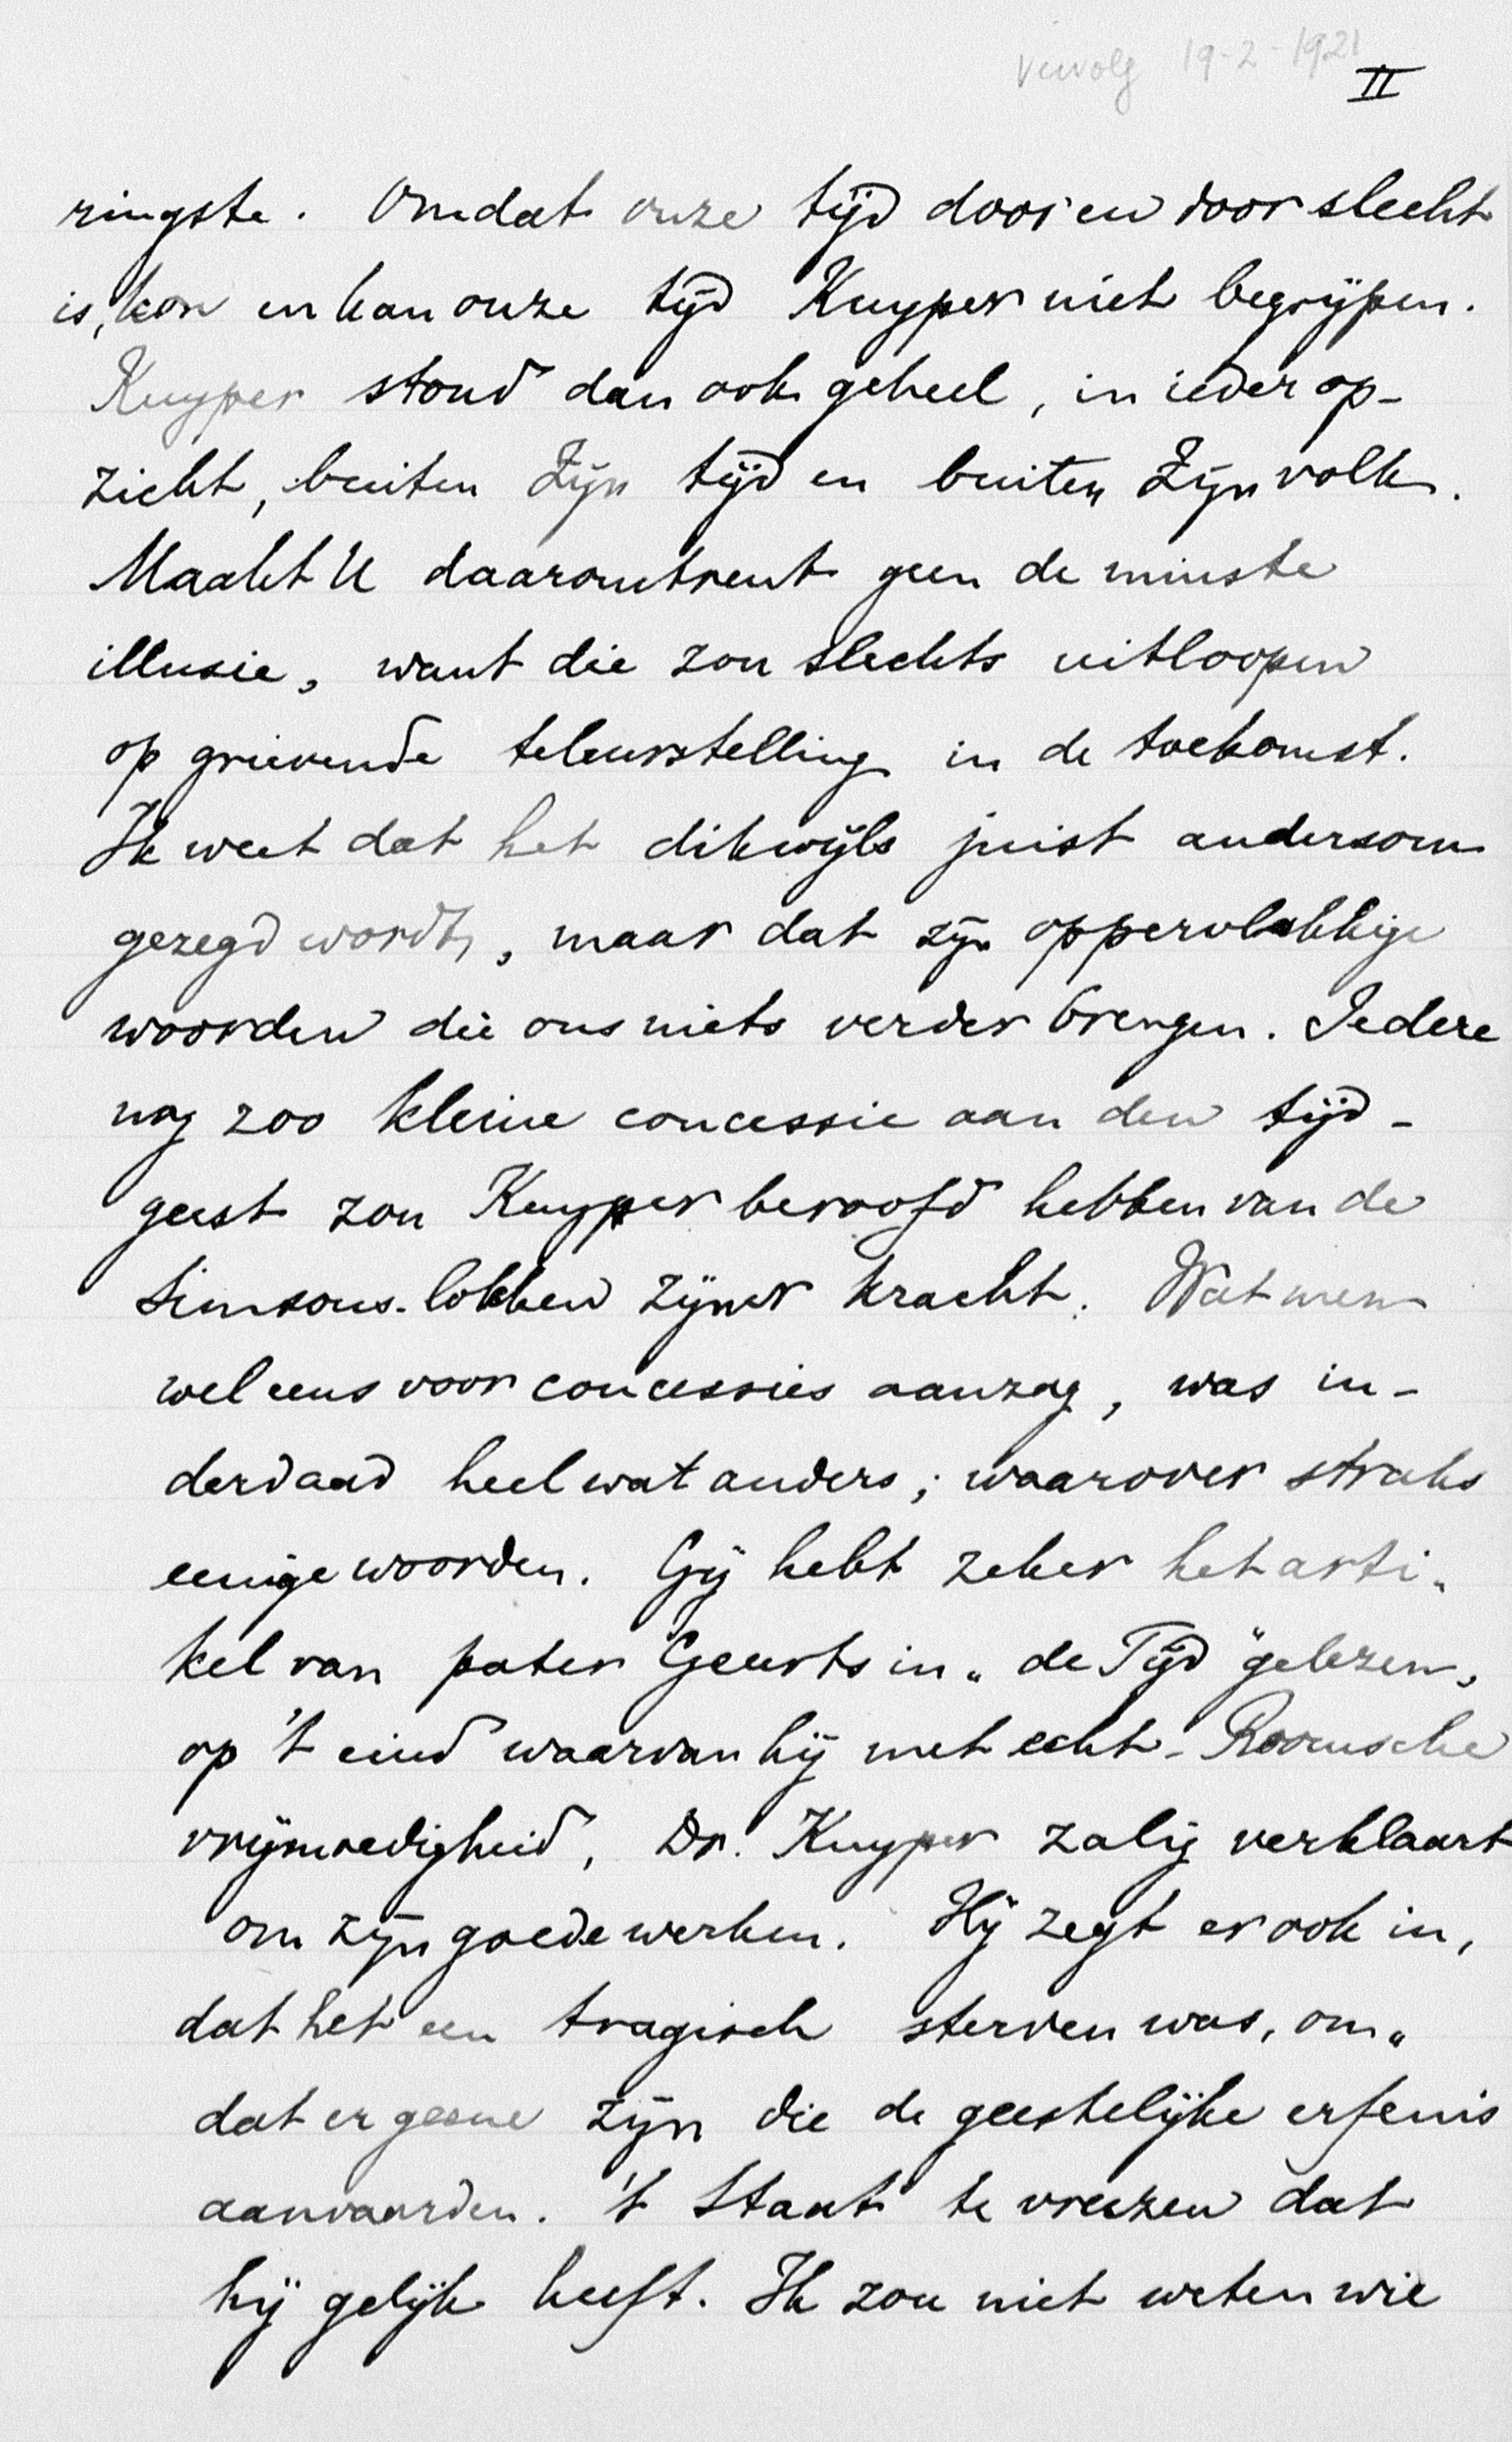 vervolg 19-2-1921
II
ringste. Omdat onze tijd door en door slecht
is, kon en kan onze tijd Kuyper niet begrijpen.
Kuyper stond dan ook geheel, in ieder op-
zicht, buiten zijn tijd en buiten zijn volk.
Maakt U daaromtrent geen de minste
illusie, want die zou slechts uitloopen
op grievende teleurstelling in de toekomst.
Ik weet dat het dikwijls juist andersom
gezegd wordt, maar dat zijn oppervlakkige
woorden die ons niets verder brengen. Iedere
nog zoo kleine concessie aan den tijd-
geest zou Kuyper beroofd hebben van de
Simsons-lokken zijner kracht. Wat men
wel eens voor concessies aanzag, was in-
derdaad heel wat anders; waarover straks
eenige woorden. Gij hebt zeker het arti-
kel van pater Geurts in „de Tijd" gelezen,
op 't eind waarvan hij met echt-Roomsche
vrijmoedigheid, Dr. Kuyper zalig verklaart
om zijn goede werken. Hij zegt er ook in,
dat het een tragisch sterven was, om-
dat er geene zijn die de geestelijke erfenis
aanvaarden. 't Staat te vreezen dat
hij gelijk heeft. Ik zou niet weten wie